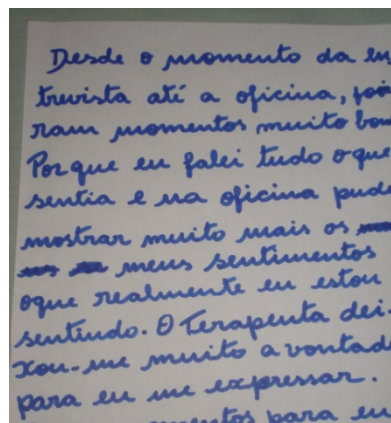 Desde o momento da en
trevista até a oficina, foi
ram momentos muito bon
Porque eu falei tudo oque
sentia e na oficina pude
mostrar muito mais os
meus sentimentos
oque realmente eu estou
sentindo. O Terapeuta dei-
xou-me muito a vontad
para eu me expressar.
para eu